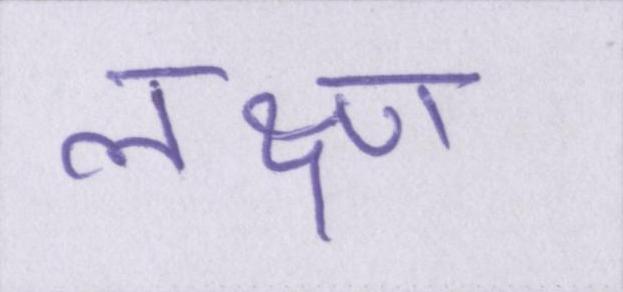 लक्ष्ण